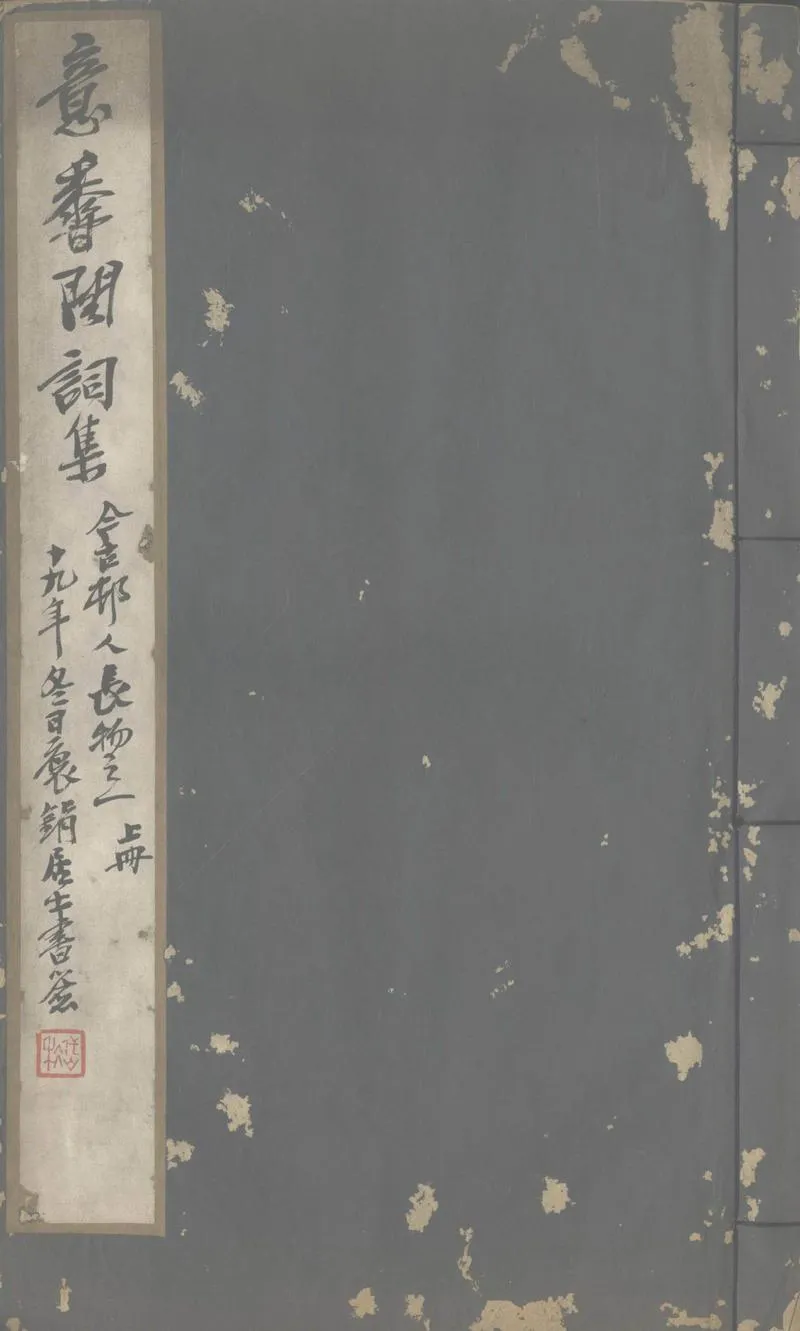 意香閣詞集
邨人長物之一 上冊
十九年冬日居士書簽